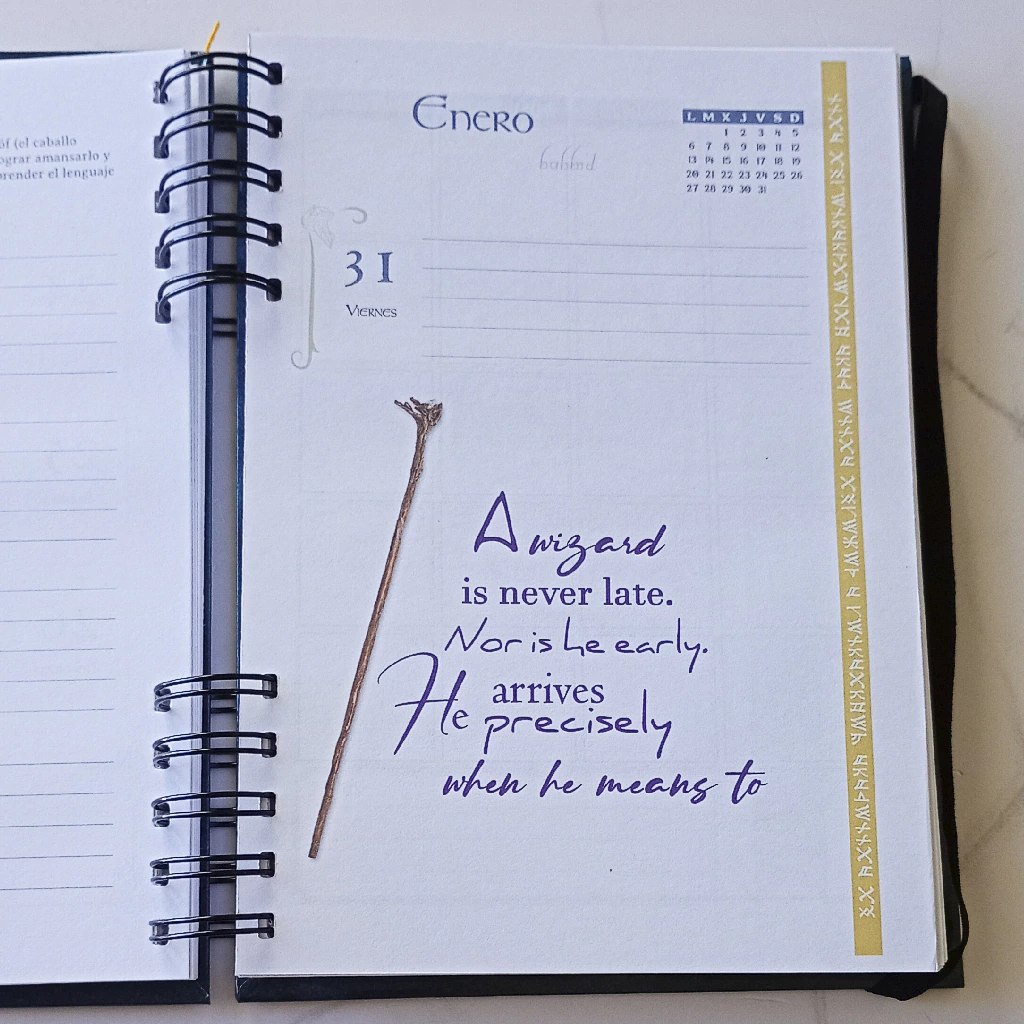 óf (el caballo
ograr amansarlo y
prender el lenguaje
Enero
L M X J V S D
1 2 3 4 5
6 7 8 9 10 11 12
13 14 15 16 17 18 19
20 21 22 23 24 25 26
27 28 29 30 31
31
Viernes
A wizard
is never late.
Nor is he early.
He arrives
precisely
when he means to